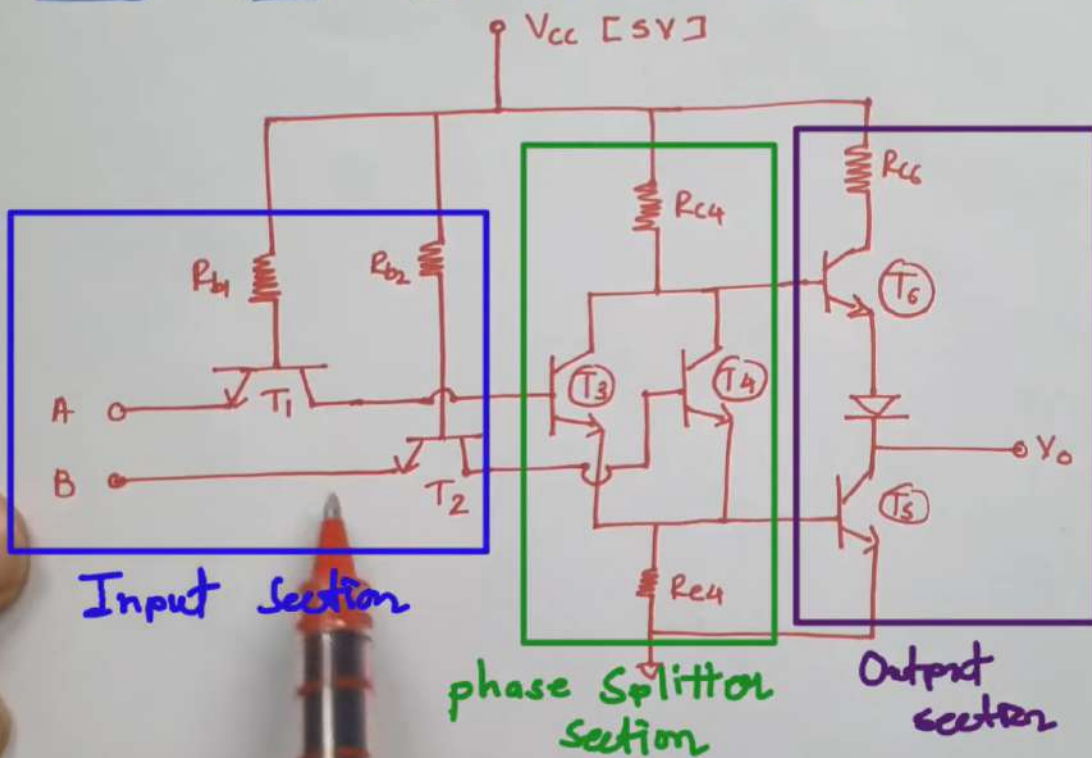 Vcc [5V]
Rb1
Rb2
Rc4
Rc6
T6
A
T1
T3
T4
B
T2
Vo
T5
Re4
Input section
phase splittor
section
Output
section